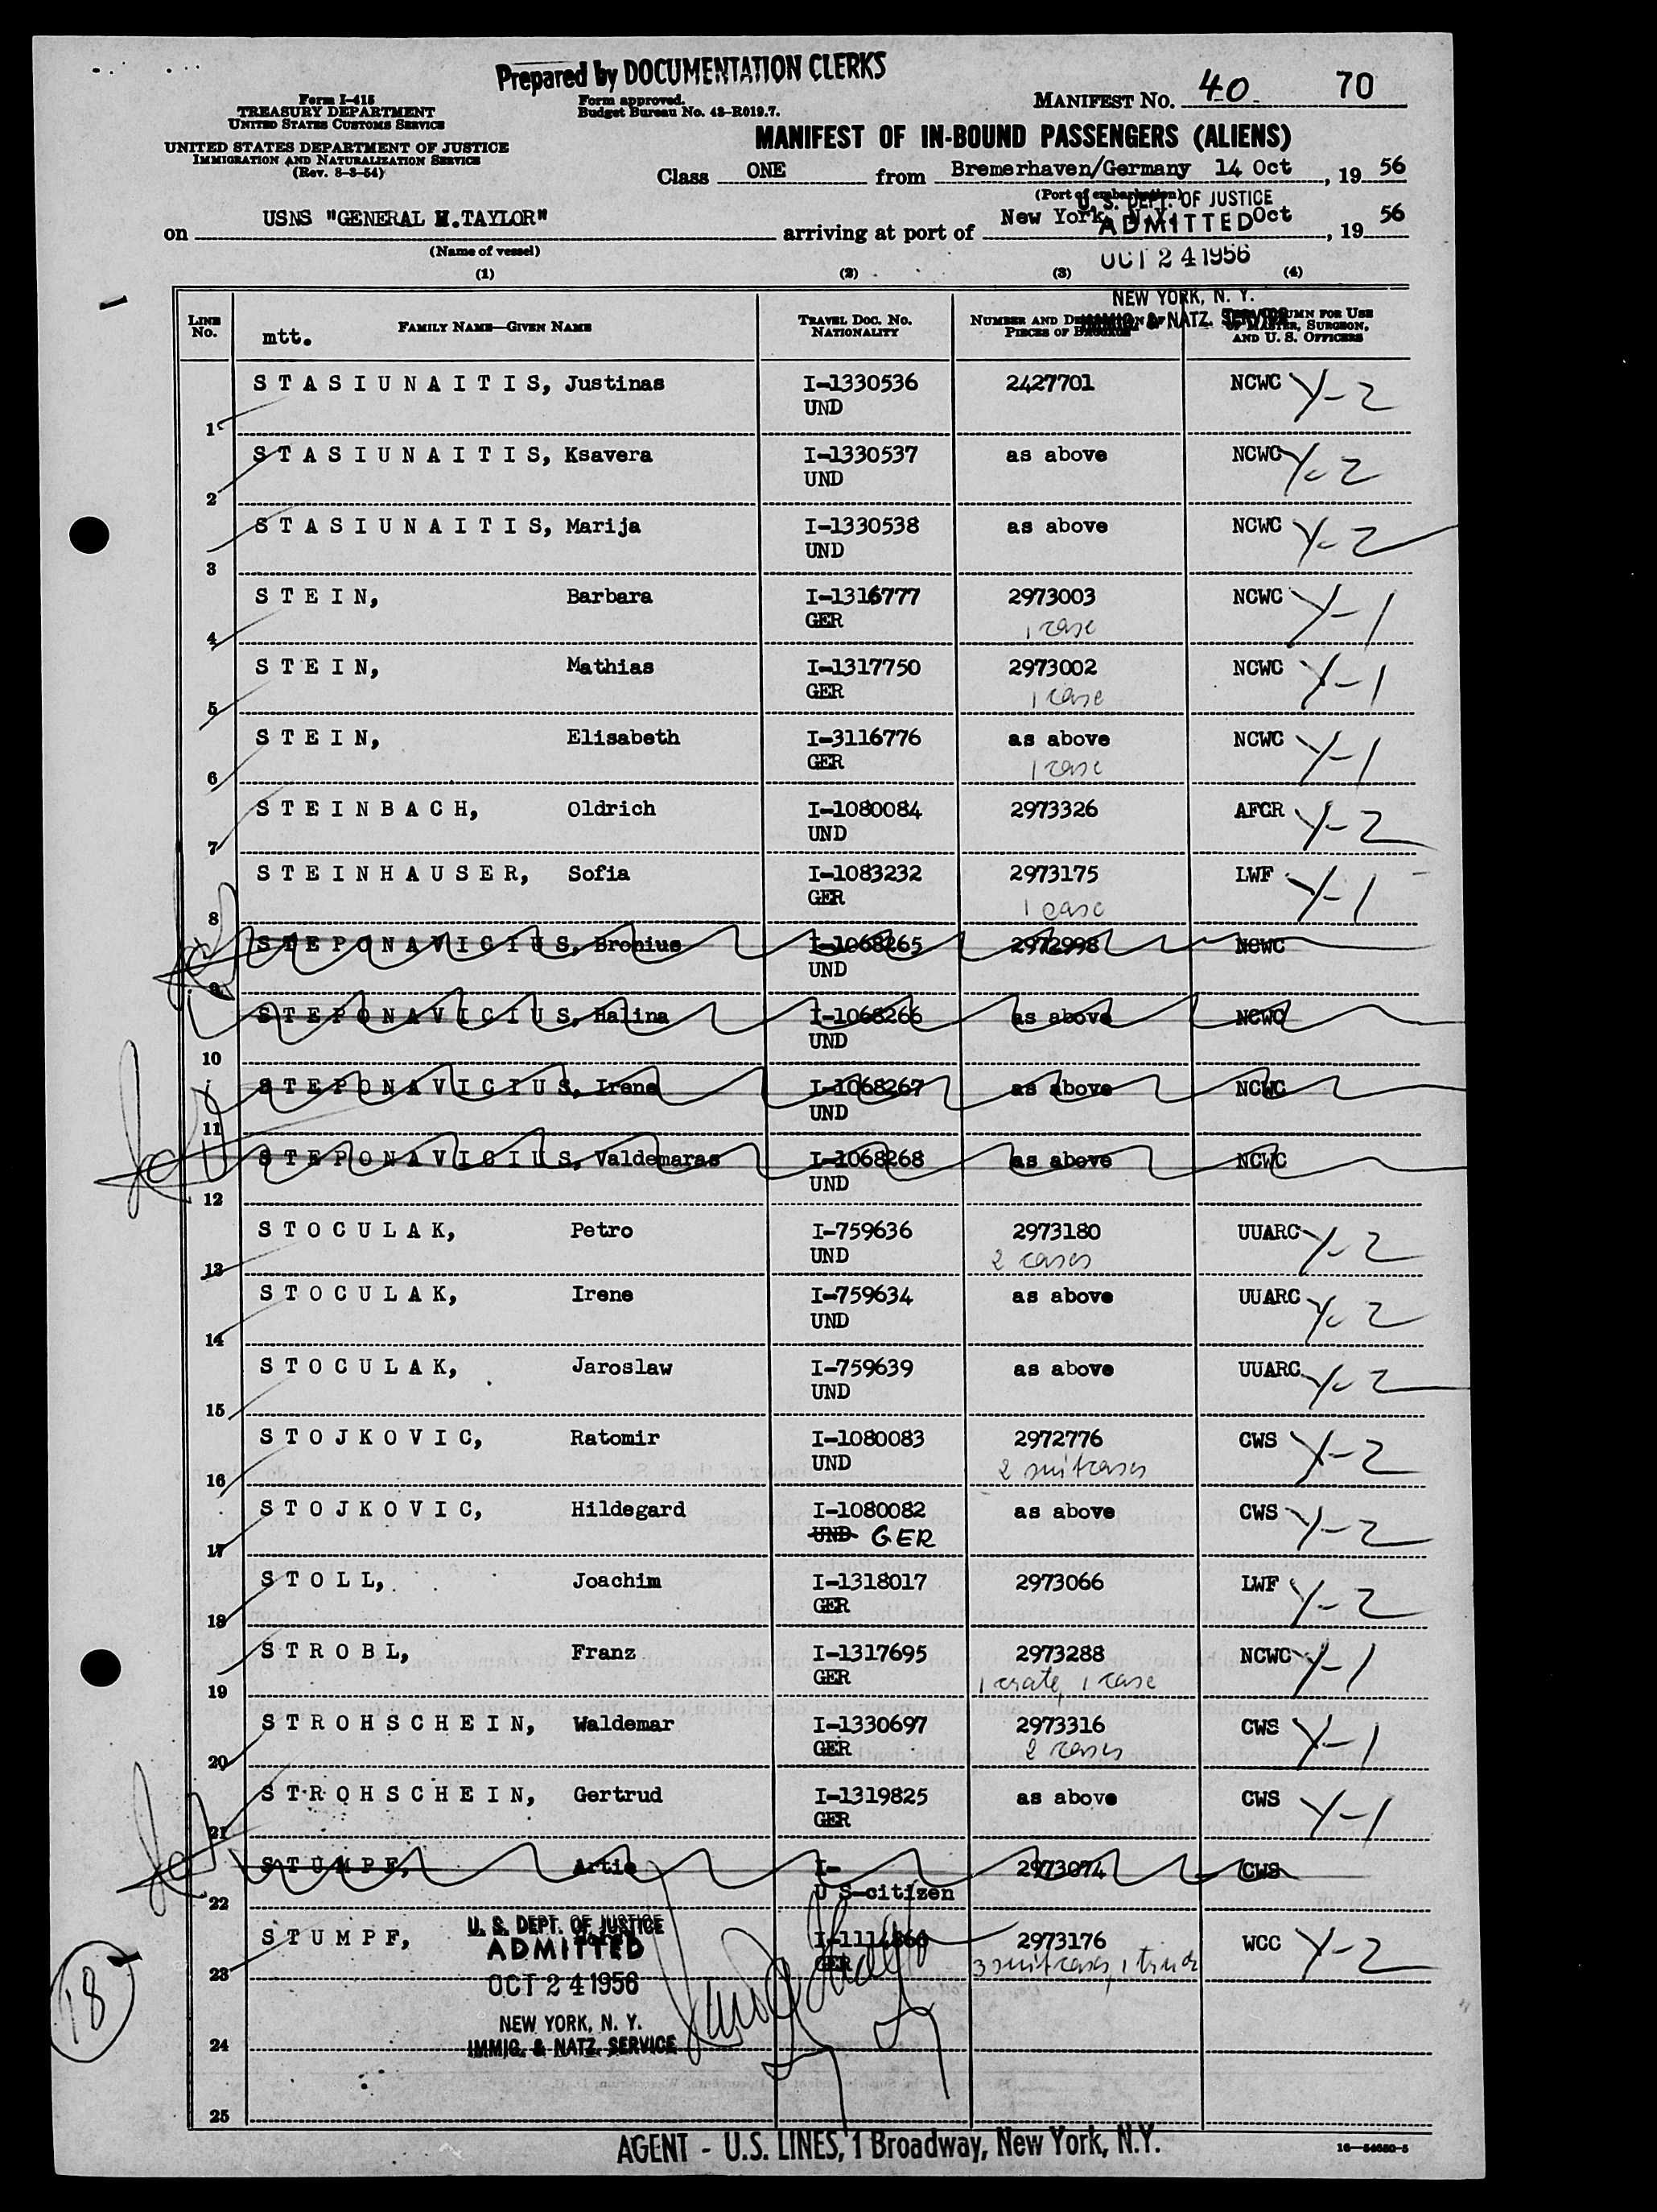 Prepared by DOCUMENTATION CLERKS
Form I-415
TREASURY DEPARTMENT
UNITED STATES CUSTOMS SERVICE
UNITED STATES DEPARTMENT OF JUSTICE
IMMIGRATION AND NATURALIZATION SERVICE
(Rev. 8-3-54)
Form approved.
Budget Bureau No. 43-R019.7.
MANIFEST NO. 40 70
MANIFEST OF IN-BOUND PASSENGERS (ALIENS)
Class ONE from Bremerhaven/Germany 14 Oct, 1956
(Port of embarkation)
on USNS "GENERAL M.TAYLOR" arriving at port of New York, N.Y. Oct, 1956
(Name of vessel)
U. S. DEPT. OF JUSTICE
ADMITTED
OCT 24 1956
NEW YORK, N. Y.
IMMIG. & NATZ. SERVICE
(1) (2) (3) (4)
LINE No. mtt. FAMILY NAME—GIVEN NAME TRAVEL DOC. NO. NATIONALITY NUMBER AND DESCRIPTION OF PIECES OF BAGGAGE COLUMN FOR USE OF MASTER, SURGEON, AND U. S. OFFICERS
1 STASIUNAITIS, Justinas I-1330536 2427701 NCWC Y-2
UND
2 STASIUNAITIS, Ksavera I-1330537 as above NCWC Y-2
UND
3 STASIUNAITIS, Marija I-1330538 as above NCWC Y-2
UND
4 STEIN, Barbara I-1316777 2973003 NCWC Y-1
GER 1 case
5 STEIN, Mathias I-1317750 2973002 NCWC Y-1
GER 1 case
6 STEIN, Elisabeth I-3116776 as above NCWC Y-1
GER 1 case
7 STEINBACH, Oldrich I-1080084 2973326 AFCR Y-2
UND
8 STEINHAUSER, Sofia I-1083232 2973175 LWF Y-1
GER 1 case
9 STEPONAVICIUS, Bronius I-1068265 2972998 NCWC
UND
10 STEPONAVICIUS, Halina I-1068266 as above NCWC
UND
11 STEPONAVICIUS, Irena I-1068267 as above NCWC
UND
12 STEPONAVICIUS, Valdemaras I-1068268 as above NCWC
UND
13 STOCULAK, Petro I-759636 2973180 UUARC Y-2
UND 2 cases
14 STOCULAK, Irene I-759634 as above UUARC Y-2
UND
15 STOCULAK, Jaroslaw I-759639 as above UUARC Y-2
UND
16 STOJKOVIC, Ratomir I-1080083 2972776 CWS Y-2
UND 2 suitcases
17 STOJKOVIC, Hildegard I-1080082 as above CWS Y-2
UND GER
18 STOLL, Joachim I-1318017 2973066 LWF Y-2
GER
19 STROBL, Franz I-1317695 2973288 NCWC Y-1
GER 1 crate, 1 case
20 STROHSCHEIN, Waldemar I-1330697 2973316 CWS Y-1
GER 2 cases
21 STROHSCHEIN, Gertrud I-1319825 as above CWS Y-1
GER
22 STUMPF, Artie I- 2973074 CWS
U S-citizen
23 STUMPF, 2973176 WCC Y-2
GER 3 suitcases, 1 trunk
U. S. DEPT. OF JUSTICE
ADMITTED
OCT 24 1956
NEW YORK, N. Y.
IMMIG. & NATZ. SERVICE
24
25
18
AGENT - U.S. LINES, 1 Broadway, New York, N.Y.